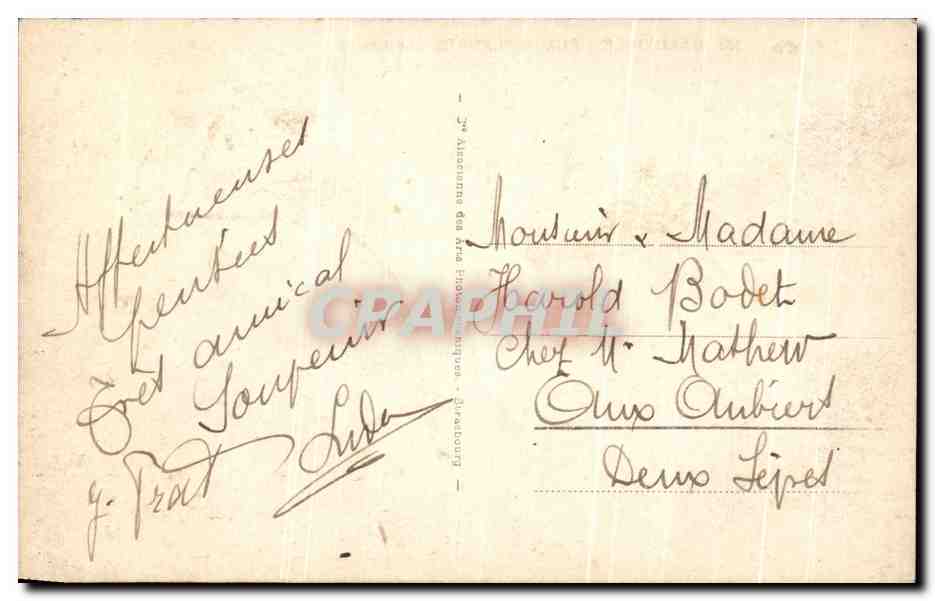 Affectueuses
pensées
Très amical
Souvenir
J. Prat
Monsieur & Madame
Harold Bodet
Chez Mr Mathew
Aux Aubiers
Deux Sèvres
Cie Alsacienne des Arts Photomécaniques - Strasbourg
CPARPHIL